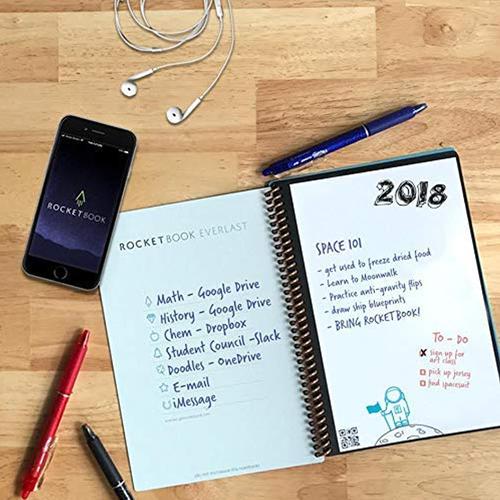 ROCKETBOOK
ROCKETBOOK EVERLAST
Math - Google Drive
History - Google Drive
Chem - Dropbox
Student Council - Slack
Doodles - OneDrive
E-mail
iMessage
2018
SPACE 101
- get used to freeze dried food
- Learn to Moonwalk
- Practice anti-gravity flips
- draw ship blueprints
- BRING ROCKETBOOK!
TO - DO
sign up for
art class
pick up jersey
find spacesuit